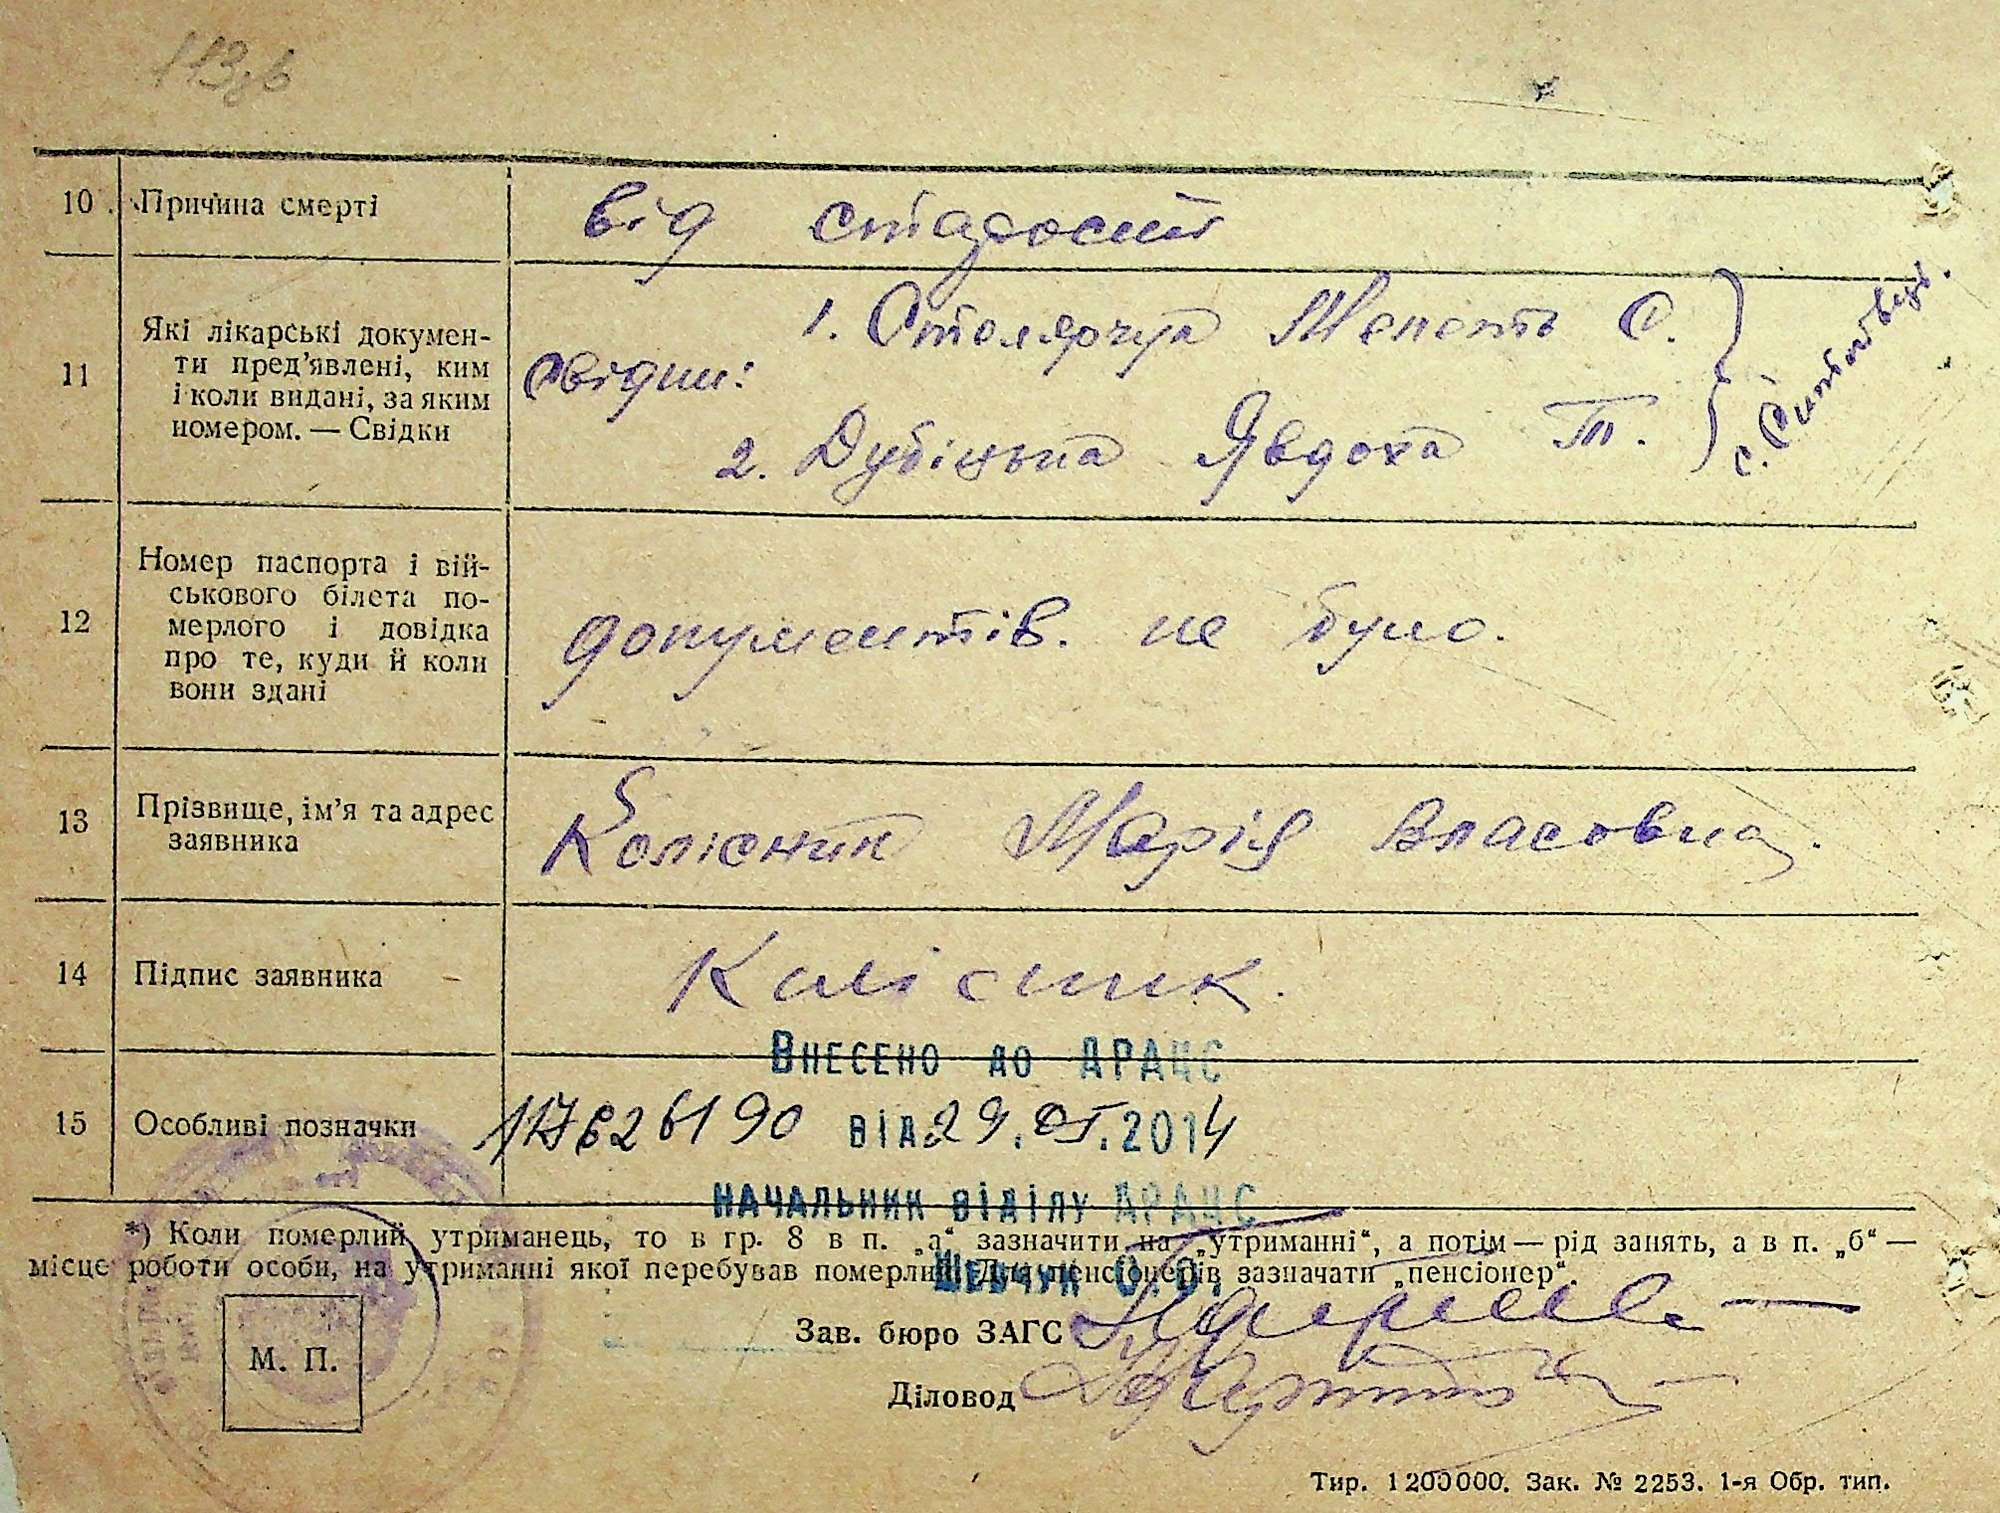 113зв
10 Причина смерті від старости
11 Які лікарські докумен-
ти пред'явлені, ким
і коли видані, за яким
номером. — Свідки
Свідки:
1. Столярчук С.
2. Дубіцька Явдоха Т.
с.
12 Номер паспорта і вій-
ськового білета по-
мерлого і довідка
про те, куди й коли
вони здані
документів. не було.
13 Прізвище, ім'я та адрес
заявника
Колісник Марія Власовна.
14 Підпис заявника Колісник.
Внесено до ДРАЦС
15 Особливі позначки від 29. 2014
НАЧАЛЬНИК ВІДІЛУ ДРАЦС
*) Коли померлий утриманець, то в гр. 8 в п. „а“ зазначити на „утриманні“, а потім — рід занять, а в п. „б“ —
місце роботи особи, на утриманні якої перебував померлий. Для пенсіонерів зазначати „пенсіонер“.
Шевчук О.О.
Зав. бюро ЗАГС
М. П.
Діловод
Тир. 1200000. Зак. № 2253. 1-я Обр. тип.